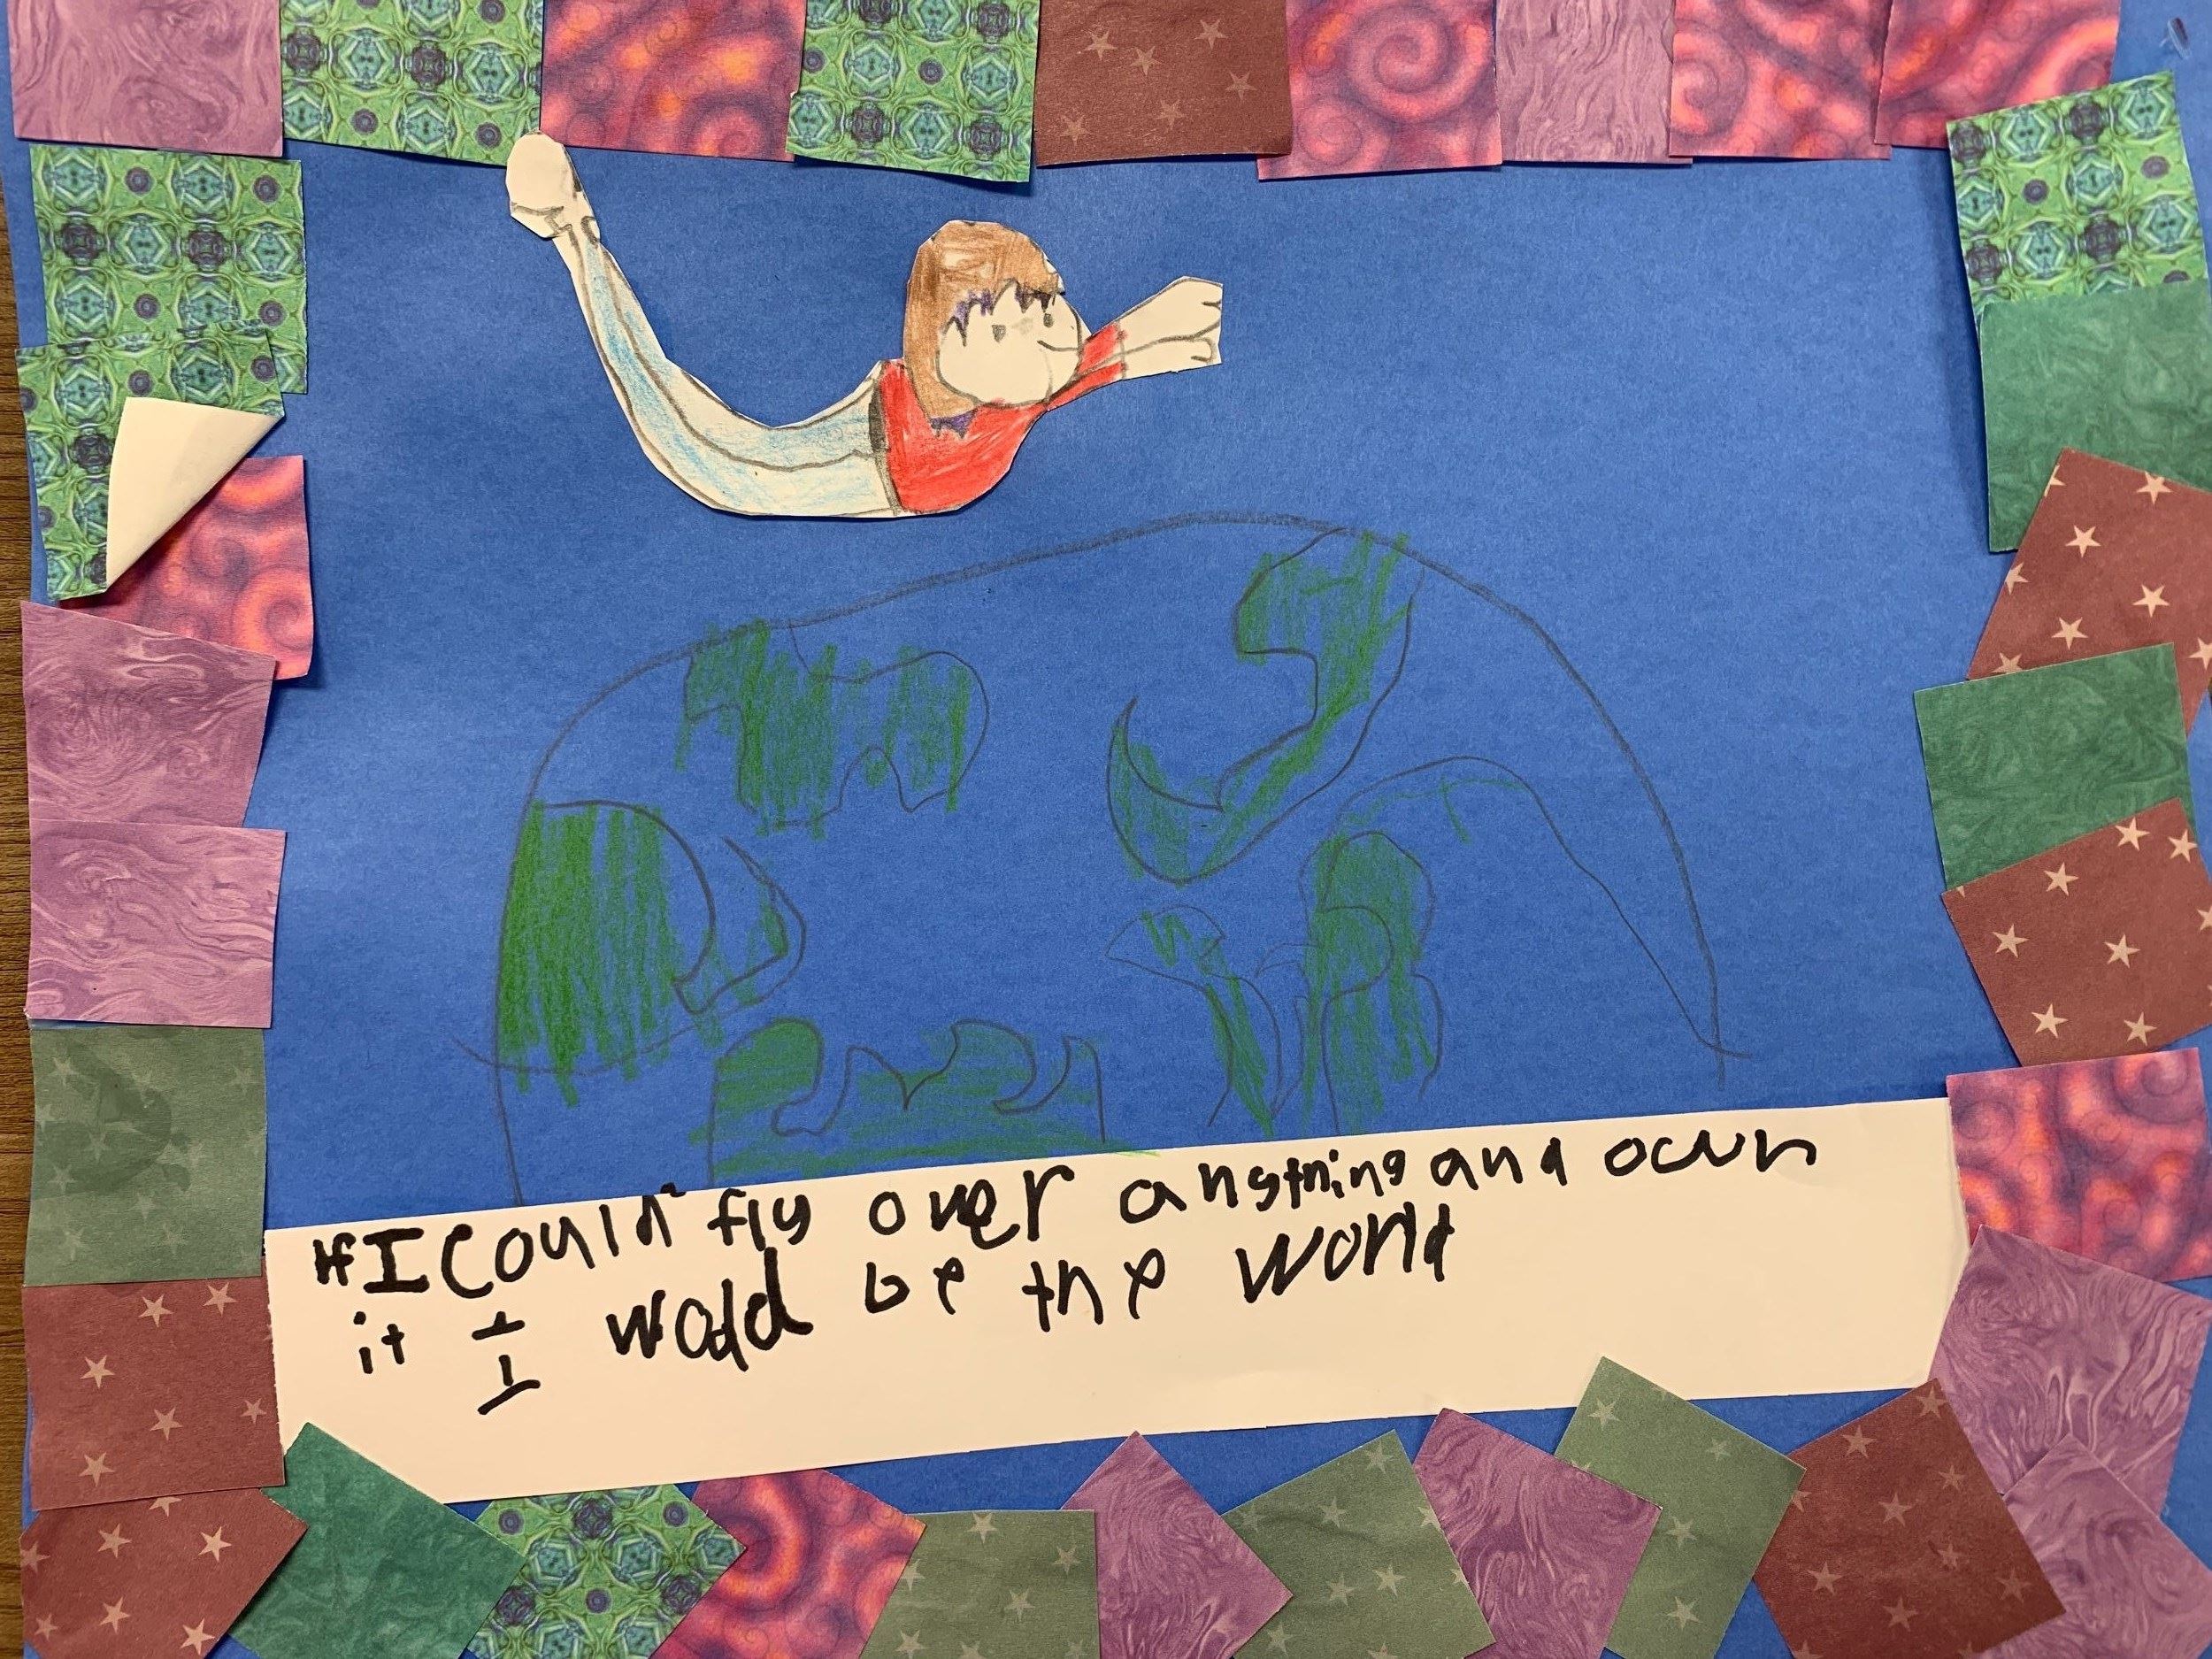 If I Could fly over anything and own
it I wold be the World